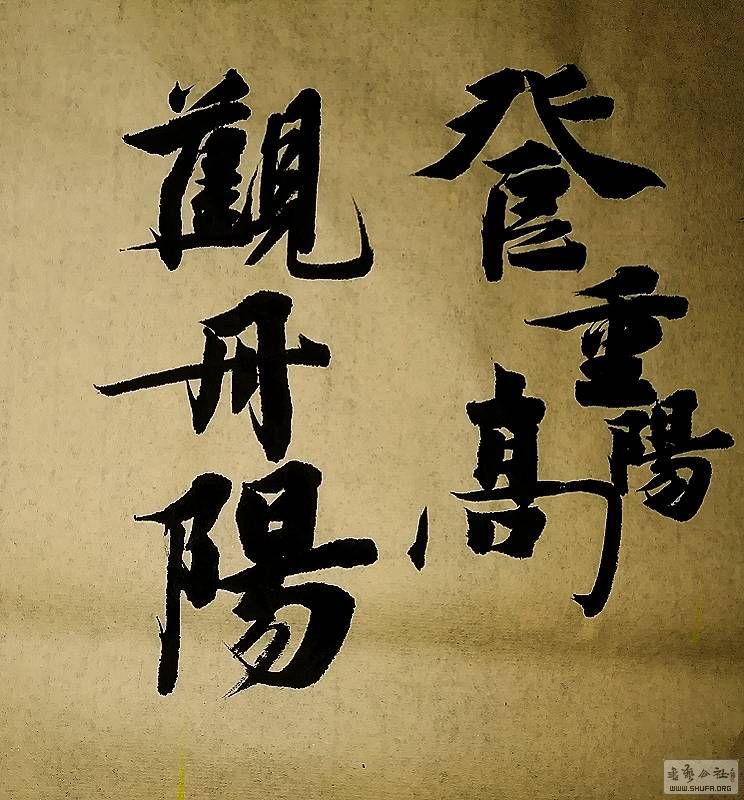 登高
重陽
觀丹陽
WWW.SHUFA.ORG